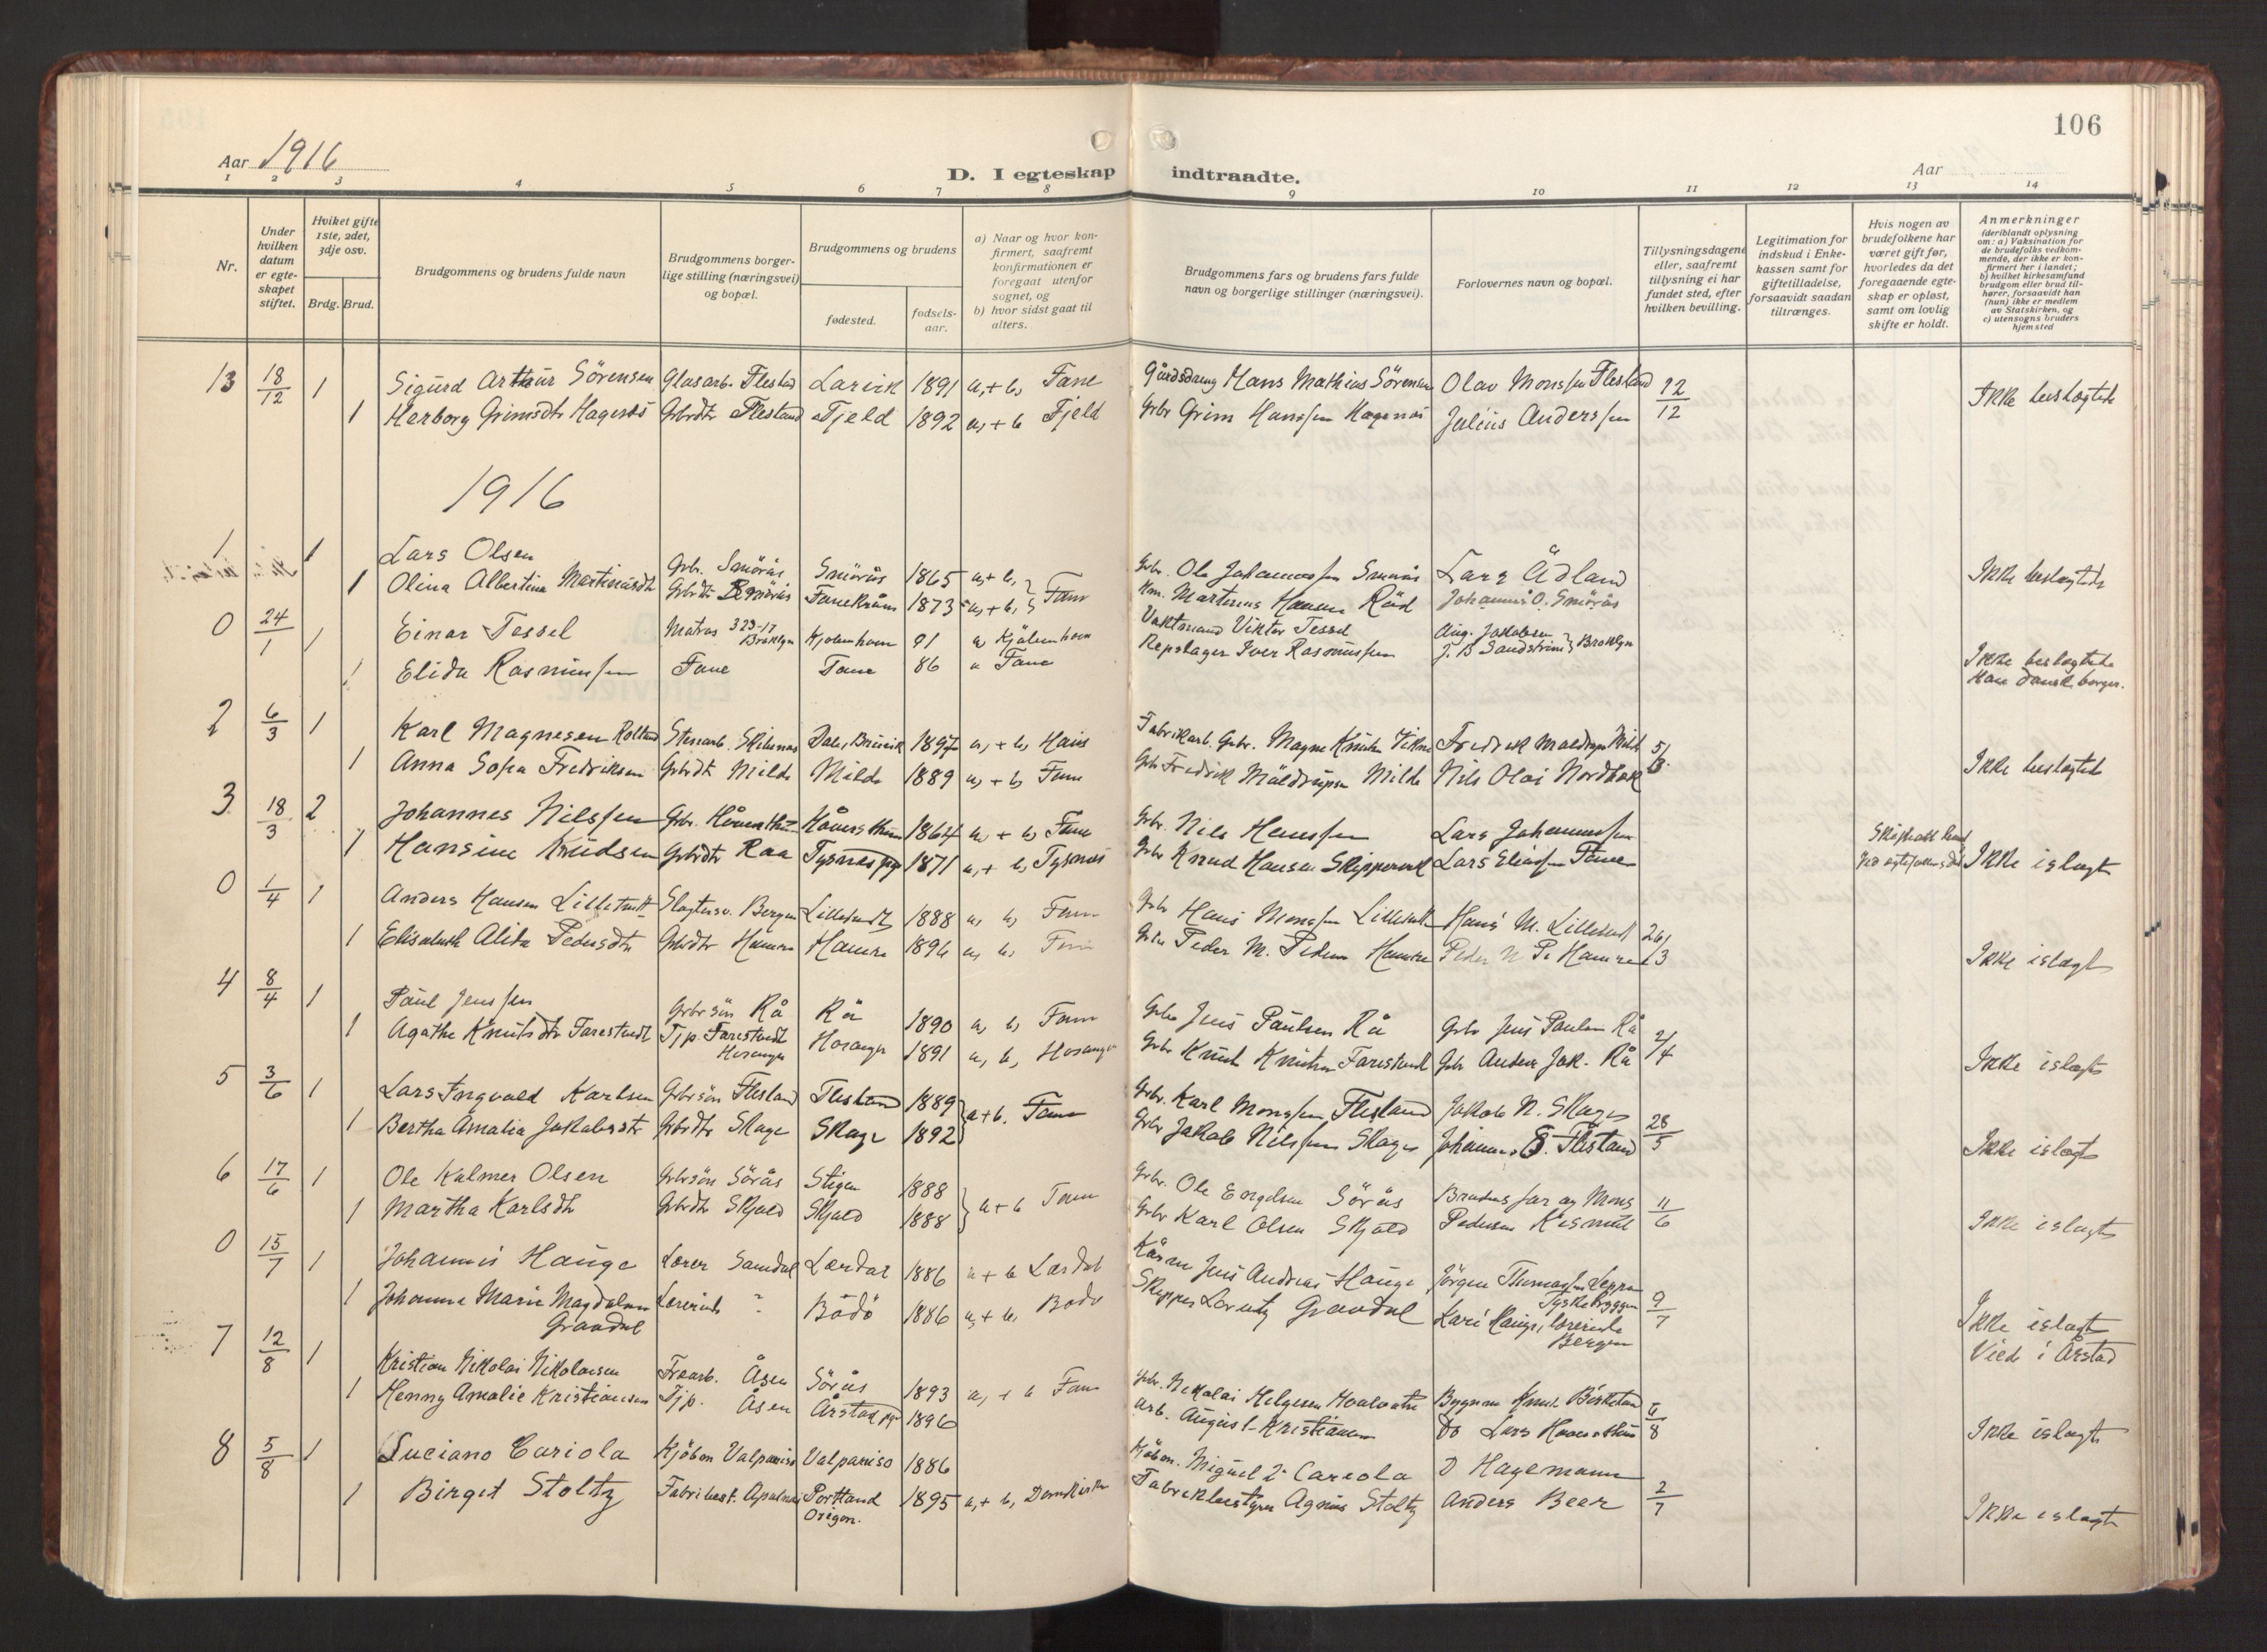 106
Aar 1916
D. I egteskap indtraadte.
Aar
1 2 3 4 5 6 7 8 9 10 11 12 13 14
Nr.
Under hvilken datum er egteskapet stiftet.
Hvilket gifte 1ste, 2det, 3dje osv.
Brdg. Brud.
Brudgommens og brudens fulde navn
Brudgommens borgerlige stilling (næringsvei) og bopæl.
Brudgommens og brudens
fødested.
fødselsaar.
a) Naar og hvor konfirmert, saafremt konfirmationen er foregaat utenfor sognet, og
b) hvor sidst gaat til alters.
Brudgommens fars og brudens fars fulde navn og borgerlige stillinger (næringsvei).
Forlovernes navn og bopæl.
Tillysningsdagene eller, saafremt tillysning ei har fundet sted, efter hvilken bevilling.
Legitimation for indskud i Enkekassen samt for giftetilladelse, forsaavidt saadan tiltrænges.
Hvis nogen av brudefolkene har været gift før, hvorledes da det foregaaende egteskap er opløst, samt om lovlig skifte er holdt.
Anmerkninger (deriblandt oplysning om: a) Vaksination for de brudefolks vedkommende, der ikke er konfirmert her i landet; b) hvilket kirkesamfund brudgom eller brud tilhører, forsaavidt han (hun) ikke er medlem av Statskirken, og c) utensogns bruders hjemsted
13 18/12 1 Sigurd Arthur Sörensen Glasarb. Flesland Larvik 1891 a, + b, Fane Gårdsdreng Hans Mathias Sörensen Olav Monssen Flesland 12/12 Ikke beslegtede
1 Herborg Grimsdtr Hagenæs Grbrdtr Flesland Fjeld 1892 a, + b Fjeld Gbr Grim Hanssen Hagenæs Julius Anderssen
1916
1 1 Lars Olsen Gbr. Smörås Smörås 1865 a, + b, Fane Gbr. Ole Johannessen Smörås Lars Ådland Ikke beslegtede
1 Olina Albertine Martinusdtr Gbrdtr Smörås 1873 a, + b, Martinus Hansen Råd Johannes O. Smörås
0 24/1 1 Einar Tessel Matros 323-17 Broklyn Kjøbenhavn 91 a Kjöbenhavn Vaktmand Viktor Tessel Aug. Jakobsen
1 Elida Rasmussen Fane Fane 86 a Fane Repslager Iver Rasmussen J. B Sandström Broklyn Ikke beslegtede
Han dansk borger.
2 6/3 1 Karl Magnesen Stenarb. Dale, Bruvik 1897 a, + b, Haus Fabrikarb. Gbr. Magne Knutsen Fredrik Maldrupsen Milde 5/3
1 Anna Sofia Fredriksen Gbrdtr Milde Milde 1889 a, + b, Fane Gbr Fredrik Maldrupsen Milde Nils Olai Nordbøk Ikke beslegtede
3 18/3 2 Johannes Nilssen Gbr. Håvardstun 1864 a, + b, Fane Gbr. Nils Hanssen Lars Johannessen
1 Hansine Knudsen Gbrdtr Raa Tysnes pg 1871 a, + b, Tysnes Gbr Knud Hansen Skippervik Lars Eliassen Fane Ikke i slegt
0 1/4 1 Anders Hansen Lilletvedt Slagtersv. Bergen Lilletvedt 1888 a, b, Fane Gbr Hans Monssen Lilletvedt Hans M. Lilletvedt 26/3
1 Elisabeth Alida Pedersdtr Gbrdtr Hamre Hamre 1896 a, b, Fane Gbr Peder M. Pedersen Hamre Peder Hamre Ikke i slegt
4 8/4 1 Paul Jenssen Gbrsön Rå Rå 1890 a, b, Fane Gbr Jens Paulsen Rå Gbr Jens Paulsen Rå 2/4
1 Agathe Knutsdtr Farestvedt Tjp. Farestvedt Hosanger Hosanger 1891 a, b, Hosanger Gbr Knut Knutsen Farestvedt Gbr Anders Jak. Rå Ikke i slegt
5 3/6 1 Lars Ingvald Karlsen Gbrsön Flesland Flesland 1889 a + b. Fane Gbr. Karl Monssen Flesland Jakob N. Skage 28/5
1 Bertha Amalia Jakobsdtr Gbrdtr Skage Skage 1892 Gbr Jakob Nilssen Skage Johannes Flesland Ikke i slegt
6 17/6 1 Ole Kalmer Olsen Gbrsön Sörås Stigen 1888 a + b Fane Gbr. Ole Engelsen Sörås Brudens far og Mons 11/6
1 Martha Karlsdtr Gbrdtr Skjold Skjold 1888 Gbr Karl Olsen Skjold Pedersen Kismul Ikke i slegt
0 15/7 1 Johannes Hauge Lærer Samdal Lærdal 1886 a + b Lærdal Jens Andreas Hauge Jörgen Thomassen 9/7
Tyskebryggen
1 Johanne Marie Magdalene Grandal Lærerinde " Bodö 1886 a, + b, Bodö Skipper Lorentz Grandal Kari Hauge, lærerinde Bergen Ikke i slegt
Viede i Årstad
7 12/8 1 Kristian Nikolai Nikolaisen Træarb. Åsen Sörås 1893 a, + b Fane Gbr. Nikolai Helgesen Byggm Knut Birkeland 6/8
1 Henny Amalie Kristiansen Tjp. Åsen Årstad pg 1896 Arb. August Kristiansen Do Lars Ikke i slegt
8 5/8 1 Luciano Cariola Kjöbm Valpariso Valpariso 1886 Kjöbm. Miguel 2. Careola D Hagemann 2/7
1 Birgit Stoltz Fabribest. Portland Oregon. 1895 a, + b, Domkirken Fabrikbestyrer Agnus Stoltz Anders Beer Ikke i slegt